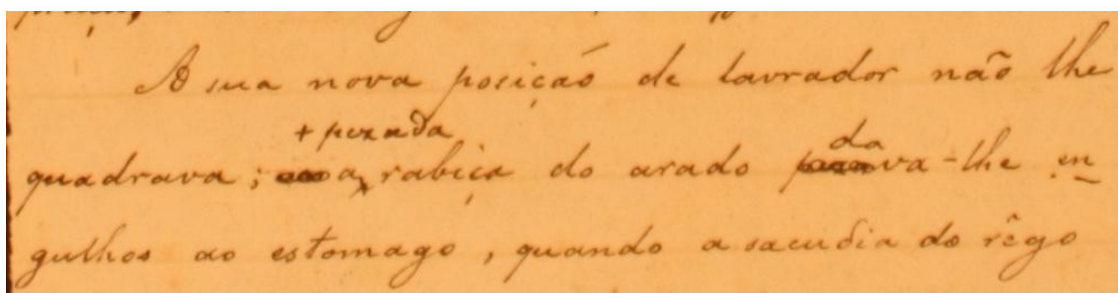 A sua nova posição de lavrador não lhe
+ pezada
da
quadrava; a rabiça do arado va-lhe en
gulhos ao estomago, quando a sacudia do rêgo